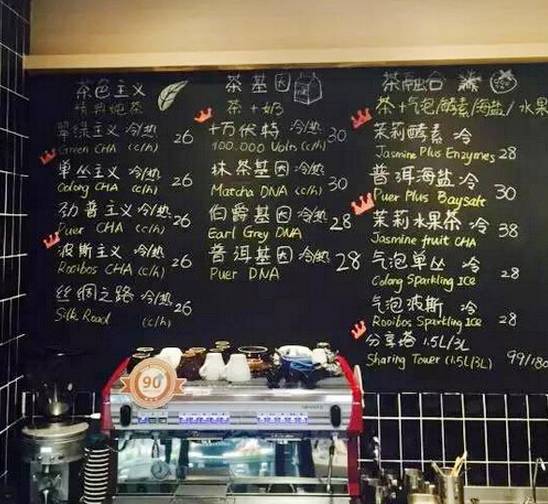 茶色主义
经典纯茶
翠绿主义 冷/热 26
Green CHA (c/h)
单丛主义 冷/热 26
Oolong CHA (c/h)
劲普主义 冷/热 26
Puer CHA (c/h)
波斯主义 冷/热 26
Rooibos CHA (c/h)
丝绸之路 冷/热 26
Silk Road (c/h)
茶基因
茶+奶
十万伏特 冷/热 30
100.000 Volts (c/h)
抹茶基因 冷/热 30
Matcha DNA (c/h)
伯爵基因 冷/热 28
Earl Grey DNA
普洱基因 冷/热 28
Puer DNA
茶融合
茶+气泡/酵素/海盐/水果
茉莉酵素 冷
Jasmine Plus Enzymes 28
普洱海盐 冷 30
Puer Plus Baysalt
茉莉水果茶 冷 38
Jasmine fruit CHA
气泡单丛 冷 28
Oolong Sparkling ICE
气泡波斯 冷 28
Rooibos Sparkling ICE
分享塔 1.5L/3L
Sharing Tower (1.5L/3L) 99/180
90